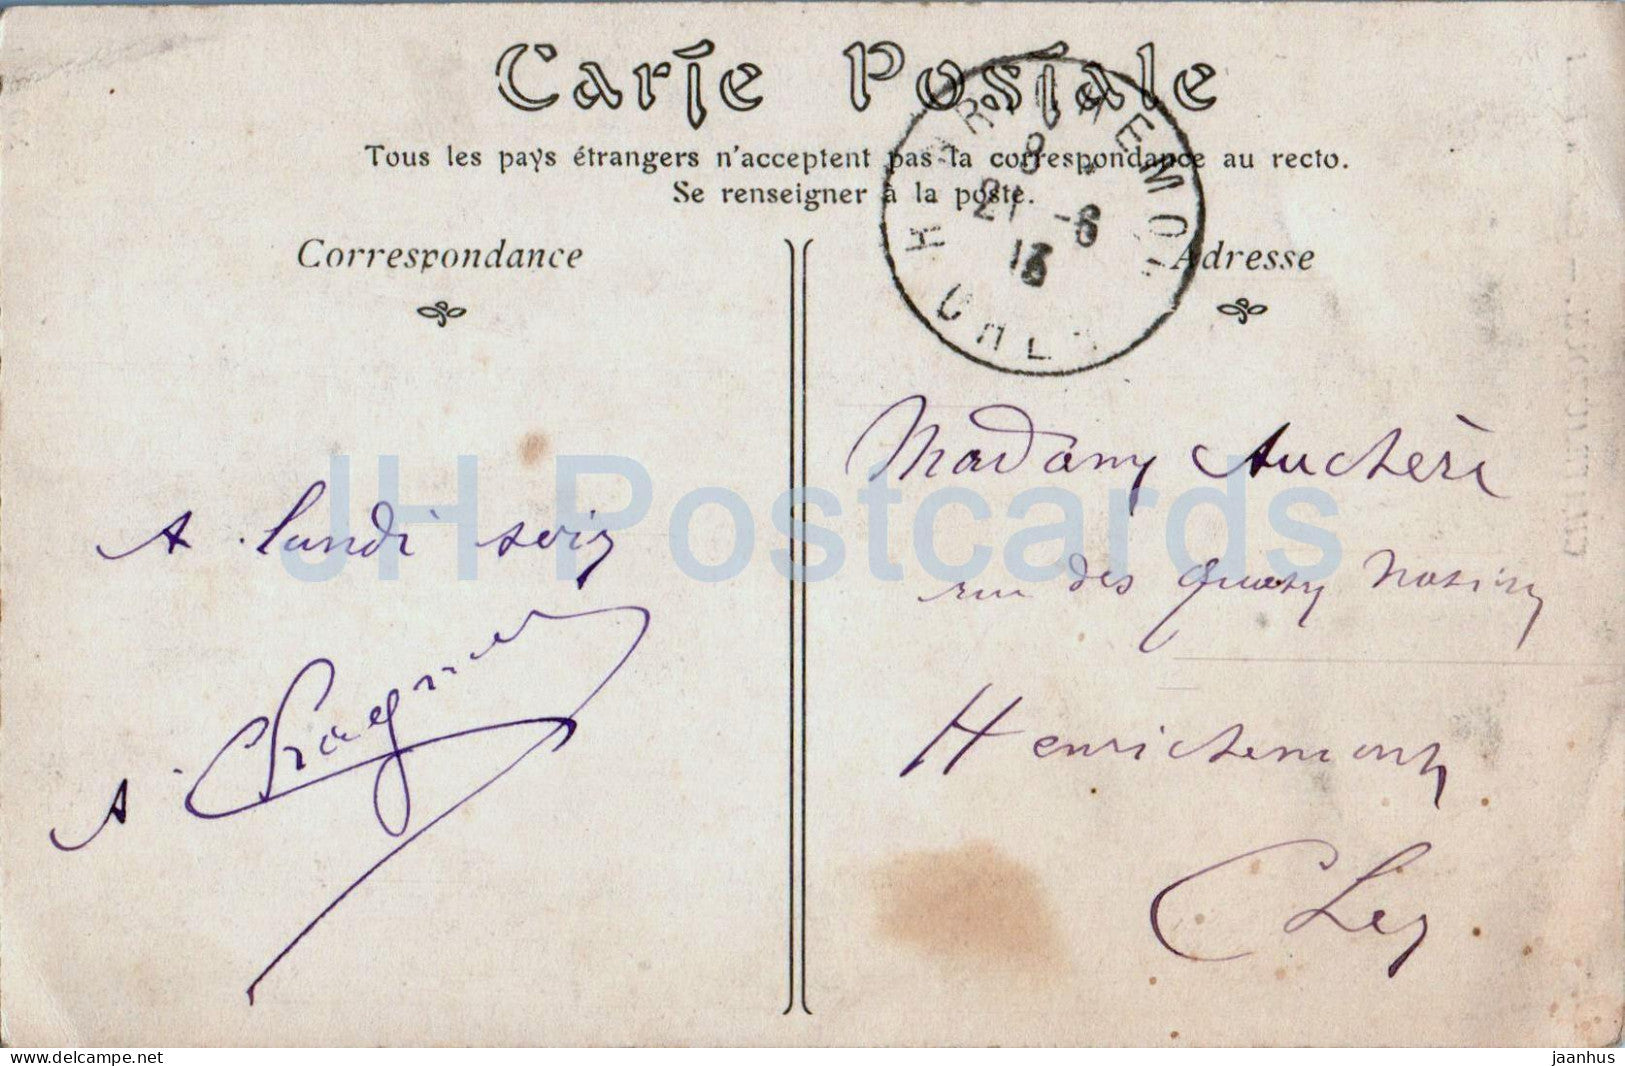 Carte Postale
Tous les pays étrangers n'acceptent pas la correspondance au recto.
Se renseigner à la poste.
Correspondance
Adresse
8
21 -6
13
JH Postcards
A lundi soir
A Chagnet
Madame Auchère
rue des
Henrichemont
Cher
delcampe.net
jaanhus